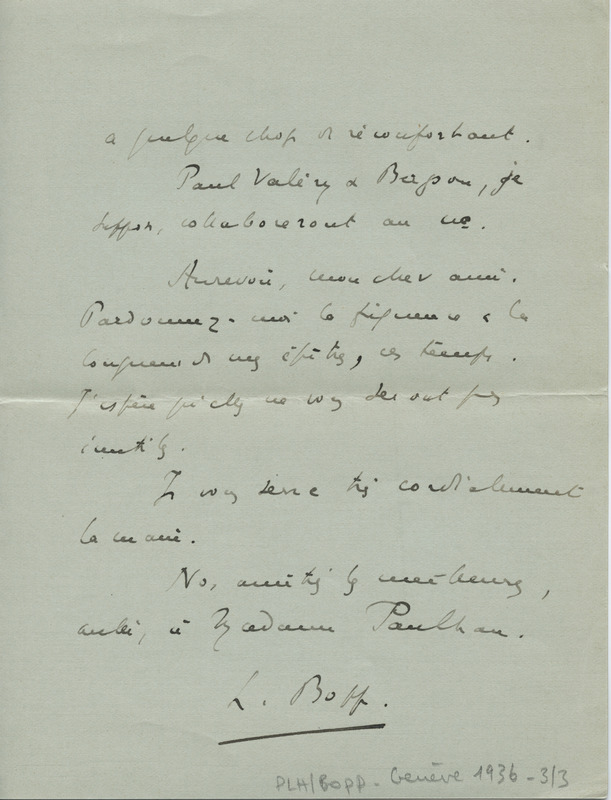 a quelque chose de réconfortant.
Paul Valéry & Bergson, je
suppose, collaboreront au no.
Aurevoir, mon cher ami.
Pardonnez-moi la fréquence & la
longueur de mes épîtres, ces temps.
J'espère qu'elles ne vous seront pas
inutiles.
Je vous serre très cordialement
la main.
Nos amitiés les meilleures,
aussi, à Madame Paulhan.
L. Bopp.
PLH/BOPP - Genève 1936 - 3/3